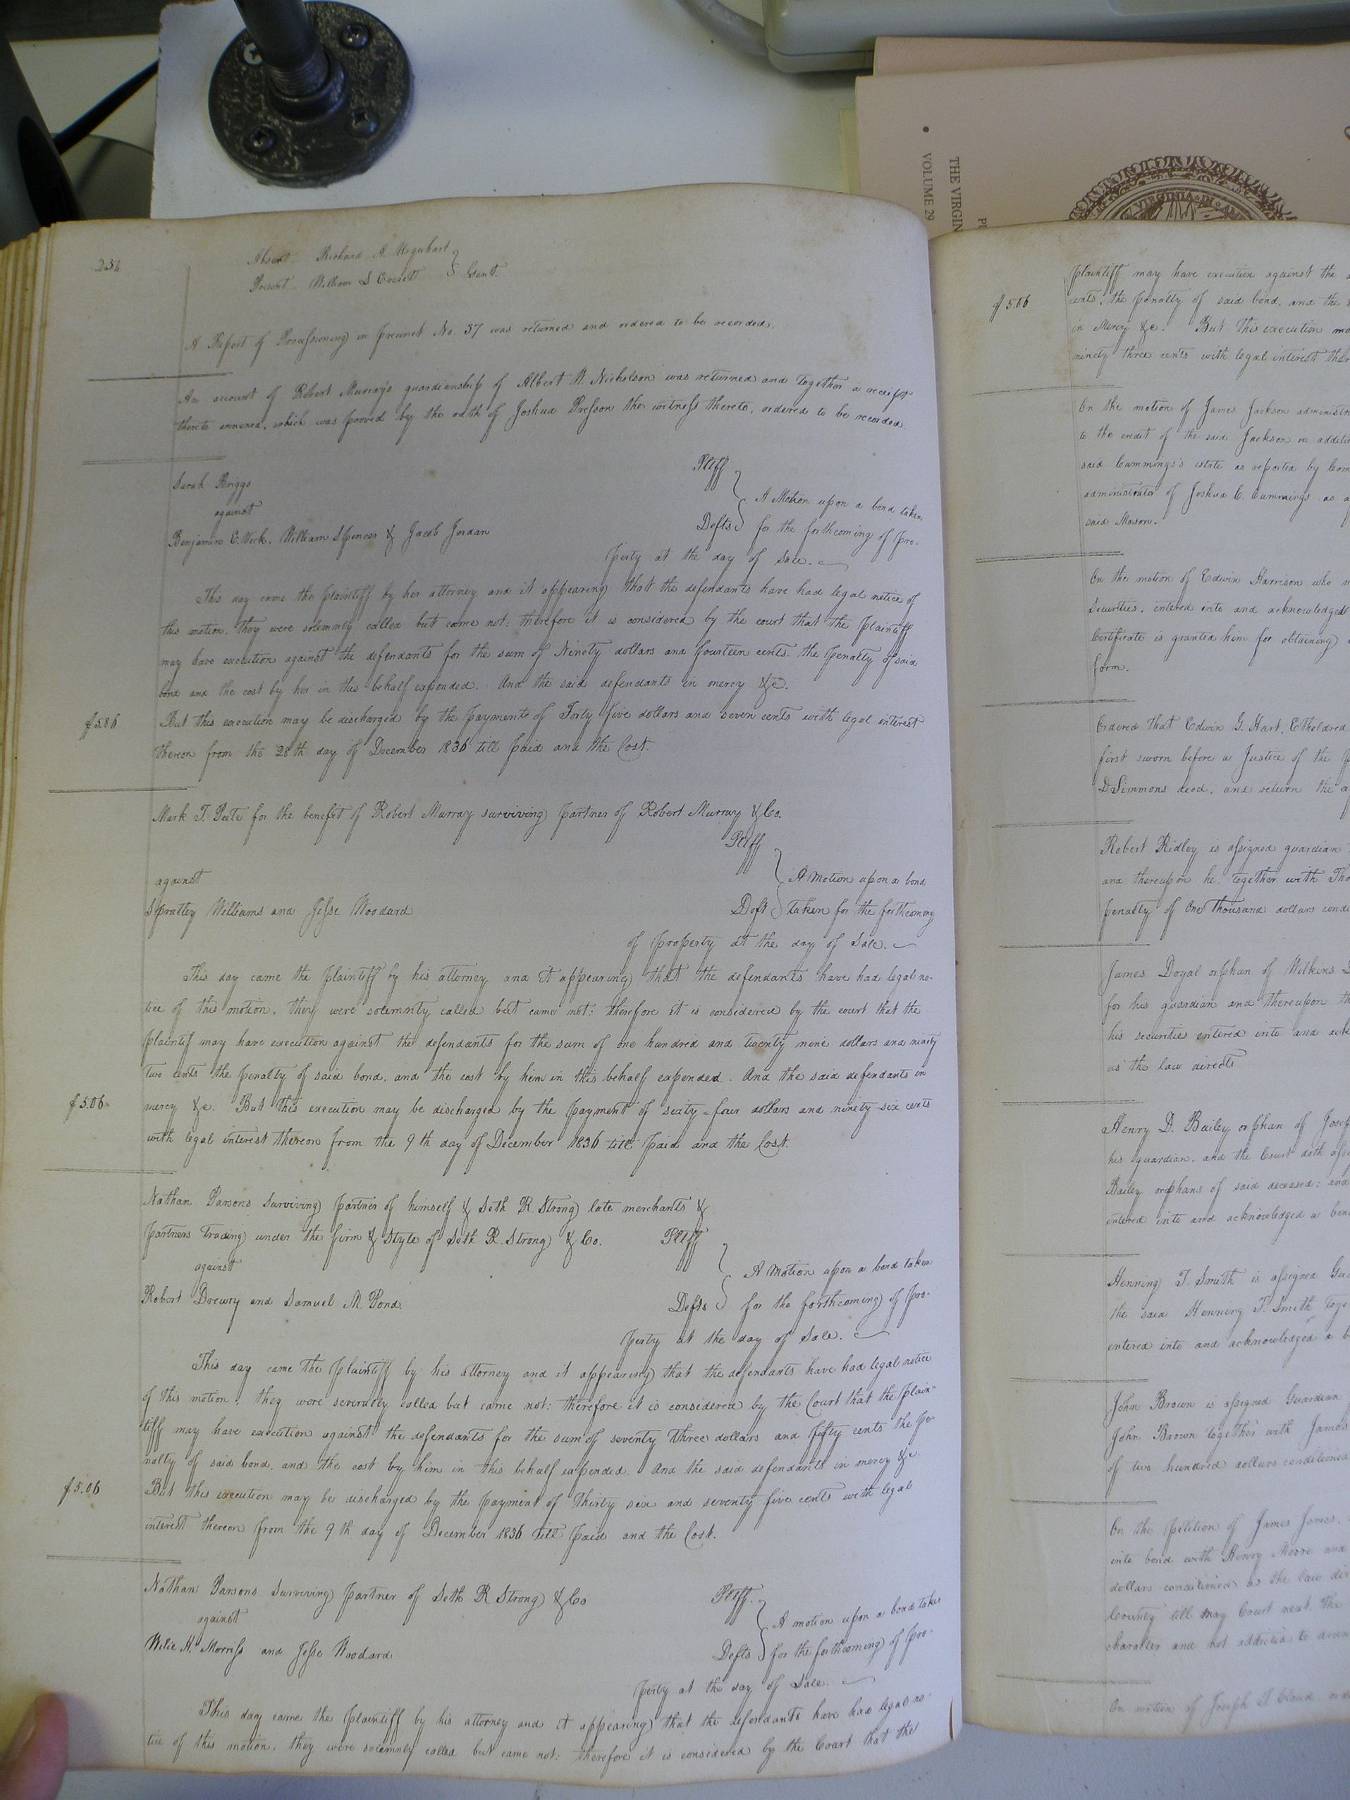 236
Absent Richard A Urquhart
Present William S Everett } Gent.
A Report of Processioning in precinct No. 37 was returned and ordered to be recorded.
An account of Robert Murray's guardianship of Albert A. Nicholson was returned and together a receipt
thereto annexed, which was proved by the oath of Joshua Presson the witness thereto, ordered to be recorded
Sarah Briggs Pltff
against
A Motion upon a bond taken
Benjamin C. Vick, William Spencer & Jacob Jordan Defts for the forthcoming of pro-
perty at the day of Sale.
This day came the plaintiff by her attorney and it appearing that the defendants have had legal notice of
this motion, they were solemnly called but came not: therefore it is considered by the court that the plaintiff
may have execution against the defendants for the sum of Ninety dollars and fourteen cents, the penalty of said
bond and the cost by her in this behalf expended. And the said defendants in mercy &c.
But this execution may be discharged by the payments of Forty five dollars and seven cents with legal interest
thereon from the 28th day of December 1836 till paid and the Cost.
Mark T. Peete for the benefit of Robert Murray surviving partner of Robert Murray & Co.
Pltff
against A Motion upon a bond
Spratley Williams and Jesse Woodard Deft taken for the forthcoming
of property at the day of Sale.
This day came the plaintiff by his attorney, and it appearing that the defendants have had legal no-
tice of this motion, they were solemnly called but came not: therefore it is considered by the court that the
plaintif may have execution against the defendants for the sum of one hundred and twenty nine dollars and ninety
two cents the penalty of said bond, and the cost by him in this behalf expended. And the said defendants in
$5.06 mercy &c. But this execution may be discharged by the payment of sixty-four dollars and ninety six cents
with legal interest thereon from the 9th day of December 1836 till paid and the Cost.
Nathan Parsons Surviving partner of himself & Seth R. Strong late merchants &
partners trading under the firm & style of Seth R. Strong & Co. Pltff
against A Motion upon a bond taken
Robert Drewry and Samuel M. Pond Defts for the forthcoming of pro-
perty at the day of Sale.
This day came the plaintiff by his attorney and it appearing that the defendants have had legal notice
of this motion, they were severally called but came not: therefore it is considered by the Court that the plain-
tiff may have execution against the defendants for the sum of seventy three dollars and fifty cents the pe-
nalty of said bond, and the cost by him in this behalf expended. And the said defendants in mercy &c
$5.06 But this execution may be discharged by the payment of Thirty six and seventy five cents with legal
interest thereon from the 9th day of December 1836 till paid and the Cost.
Nathan Parsons Surviving partner of Seth R Strong & Co Pltff.
against A motion upon a bond taken
Wilie H. Morriss and Jesse Woodard Defts for the forthcoming of pro-
perty at the day of Sale.
This day came the plaintiff by his attorney and it appearing that the defendants have had legal no-
tice of this motion, they were solemnly called but came not: therefore it is considered by the Court that the
THE VIRGIN
VOLUME 29
$5.06
plaintiff may have execution against the
cents, the penalty of said bond, and the
in Mercy &c. But this execution
ninety three cents with legal interest
On the motion of James Jackson
to the credit of the said Jackson in
said Cummings's estate as reported by
administrator of Joshua C. Cummings as
said Mason.
On the motion of Edwin Harrison who
Securities, entered into and acknowledged
Certificate is granted him for obtaining
form.
Ordered that Edwin G. Hart, Etheldred
first sworn before a Justice of the
D Simmons decd, and return the
Robert Ridley is assigned guardian
and thereupon he together with
penalty of One Thousand dollars
James Doyal orphan of Wilkins
for his guardian and thereupon
his securities entered into and
as the law directs
Henry D. Bailey orphan of
his guardian, and the Court doth
Bailey orphans of said deceased; and
entered into and acknowledged a
Henning T. Smith is assigned
the said Henning T. Smith
entered into and acknowledged a
John Brown is assigned Guardian
John Brown together with James
of two hundred dollars conditioned
On the petition of James Jones,
into bond with Henry Moore and
dollars conditioned as the law
County till May Court next. The
character and not addicted to
On motion of Joseph T. Claud